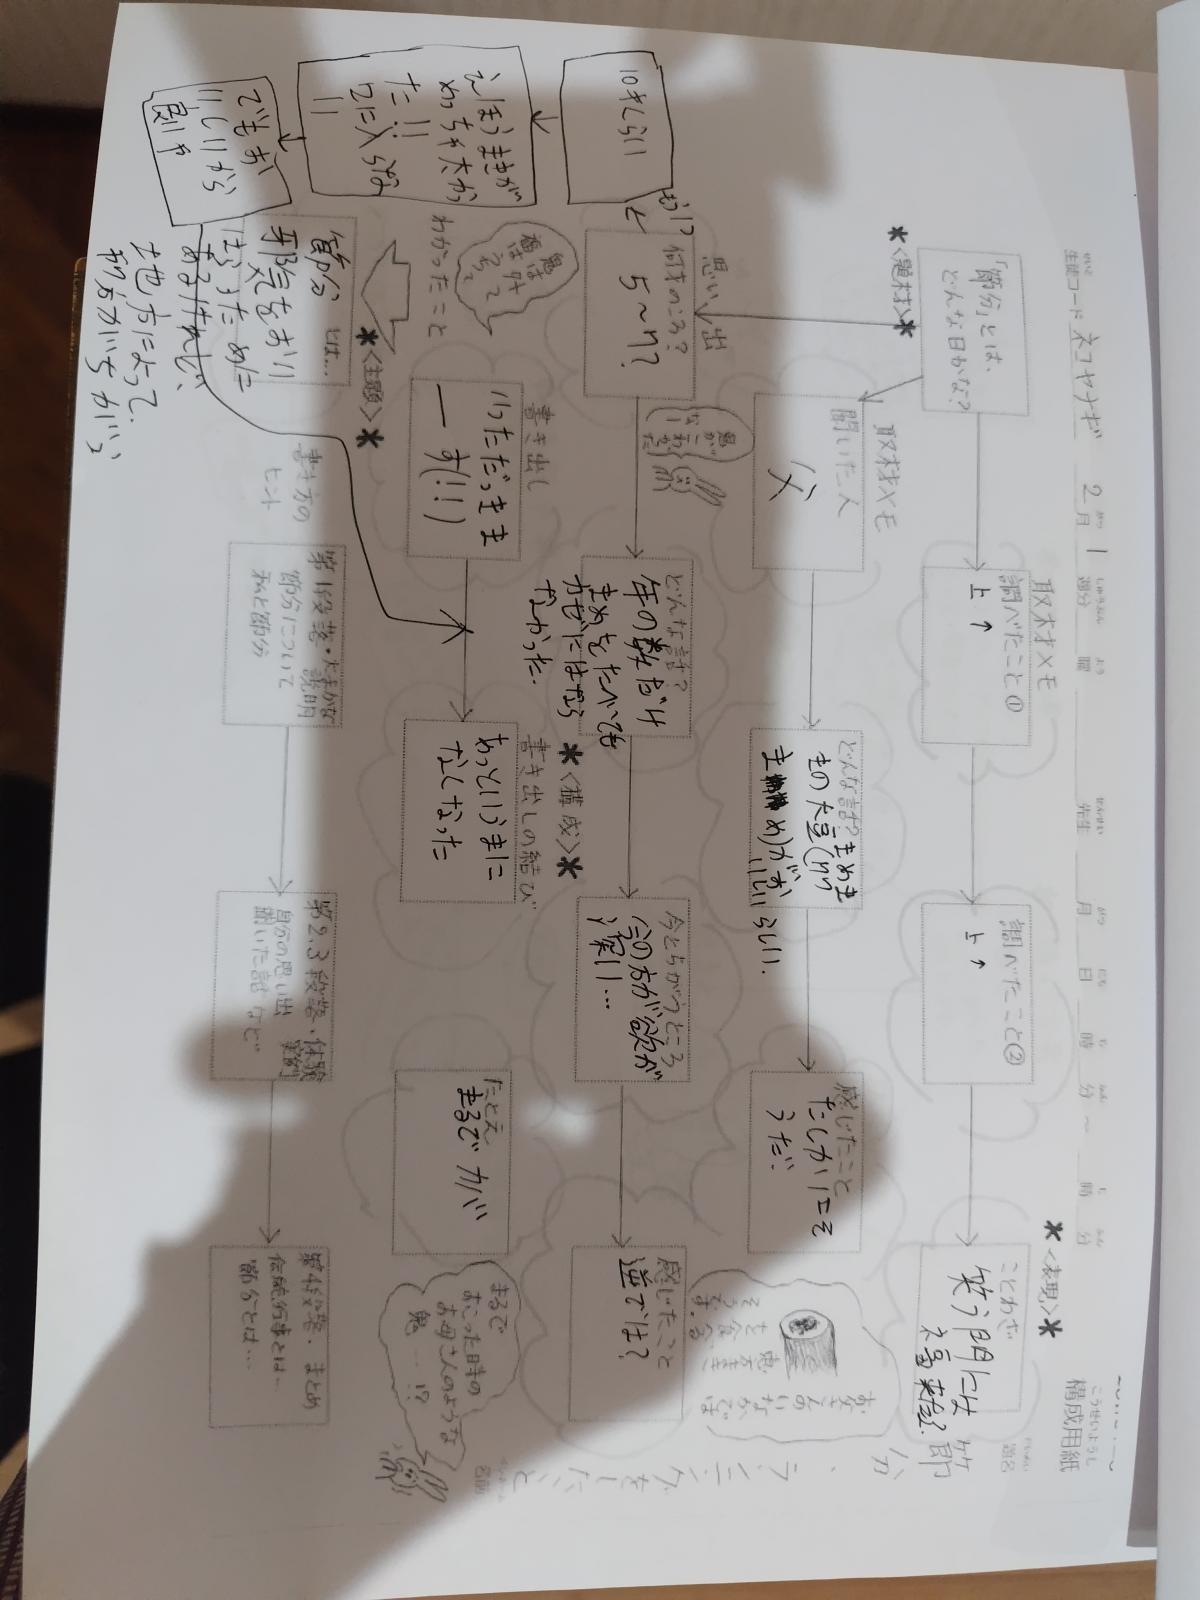 こうせいようし
構成用紙
題名
節分
名前
生徒コード ネコヤナギ 2月 1週分
先生 月 日 時 分 ～ 時 分
＊<題材>＊
「節分」とは、
どんな日かな？
取材メモ
調べたこと①
上↑
調べたこと②
上↑
＊<表現>＊
ことわざ
笑う門には
福来たる
取材メモ
聞いた人
父
どんな話？
がお
いしいらしい.
感じたこと
たしかにそ
うだ.
お父さんのいなかでは
恵方まき
を食べる
そうです.
思い出
もう1つ
何才のころ？
5～7？
鬼が
こわかっ
た
どんな話？
年の数だけ
まめをたべても
カゼにはなら
なかった.
今とちがうところ
今の方が欲が
深い…
感じたこと
逆では？
10才くらい
えほうまきが
めっちゃ太かっ
た!!
口に入らな
い
でもお
いしいから
良いや
＊<構成>＊
書き出し
いっただっきま
ーーす(!!)
書き出しの結び
あっというまに
なくなった
たとえ
まるでカバ
まるで
おこった日時の
お母さんのような
鬼…!?
鬼は外
福はうち
わかったこと
＊<主題>＊
節分とは…
邪気をおい
はらうために
あるけれど、
地方によって、
和方がいちがう
書き方の
ヒント
第1段落・大まかな
説明
節分について
私と節分
第2.3段落・体験
実例
自分の思い出
聞いた話 など
第4段落・まとめ
伝統行事とは…
節分とは…